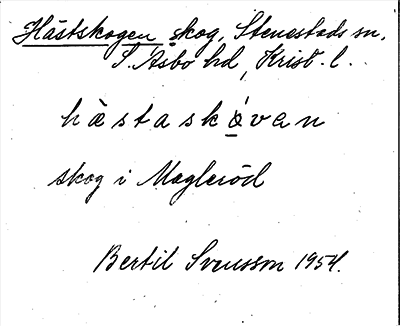 Hästskogen skog, Stenestads sn,
S. Åsbo hd, Krist. l.
hästaskåvan
skog i Magleröd
Bertil Svensson 1954.